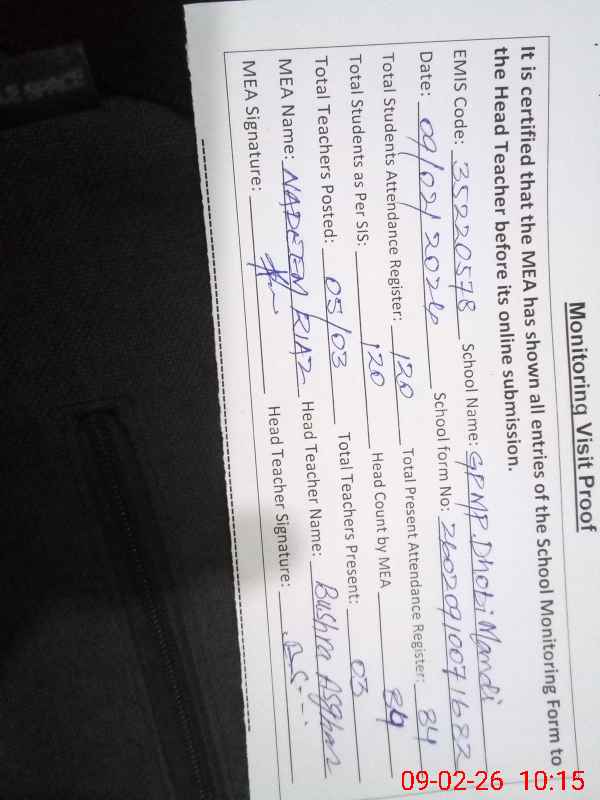 Monitoring Visit Proof
It is certified that the MEA has shown all entries of the School Monitoring Form to
the Head Teacher before its online submission.
EMIS Code: 35220578 School Name: GPMP. Dhobi Mandi
Date: 09/02/2026 School form No: 26020910071682
Total Students Attendance Register: 120 Total Present Attendance Register: 84
Total Students as Per SIS: 120 Head Count by MEA 84
Total Teachers Posted: 05/03 Total Teachers Present: 03
MEA Name: NADEEM RIAZ Head Teacher Name: Bushra Asghar
MEA Signature: Head Teacher Signature:
09-02-26 10:15